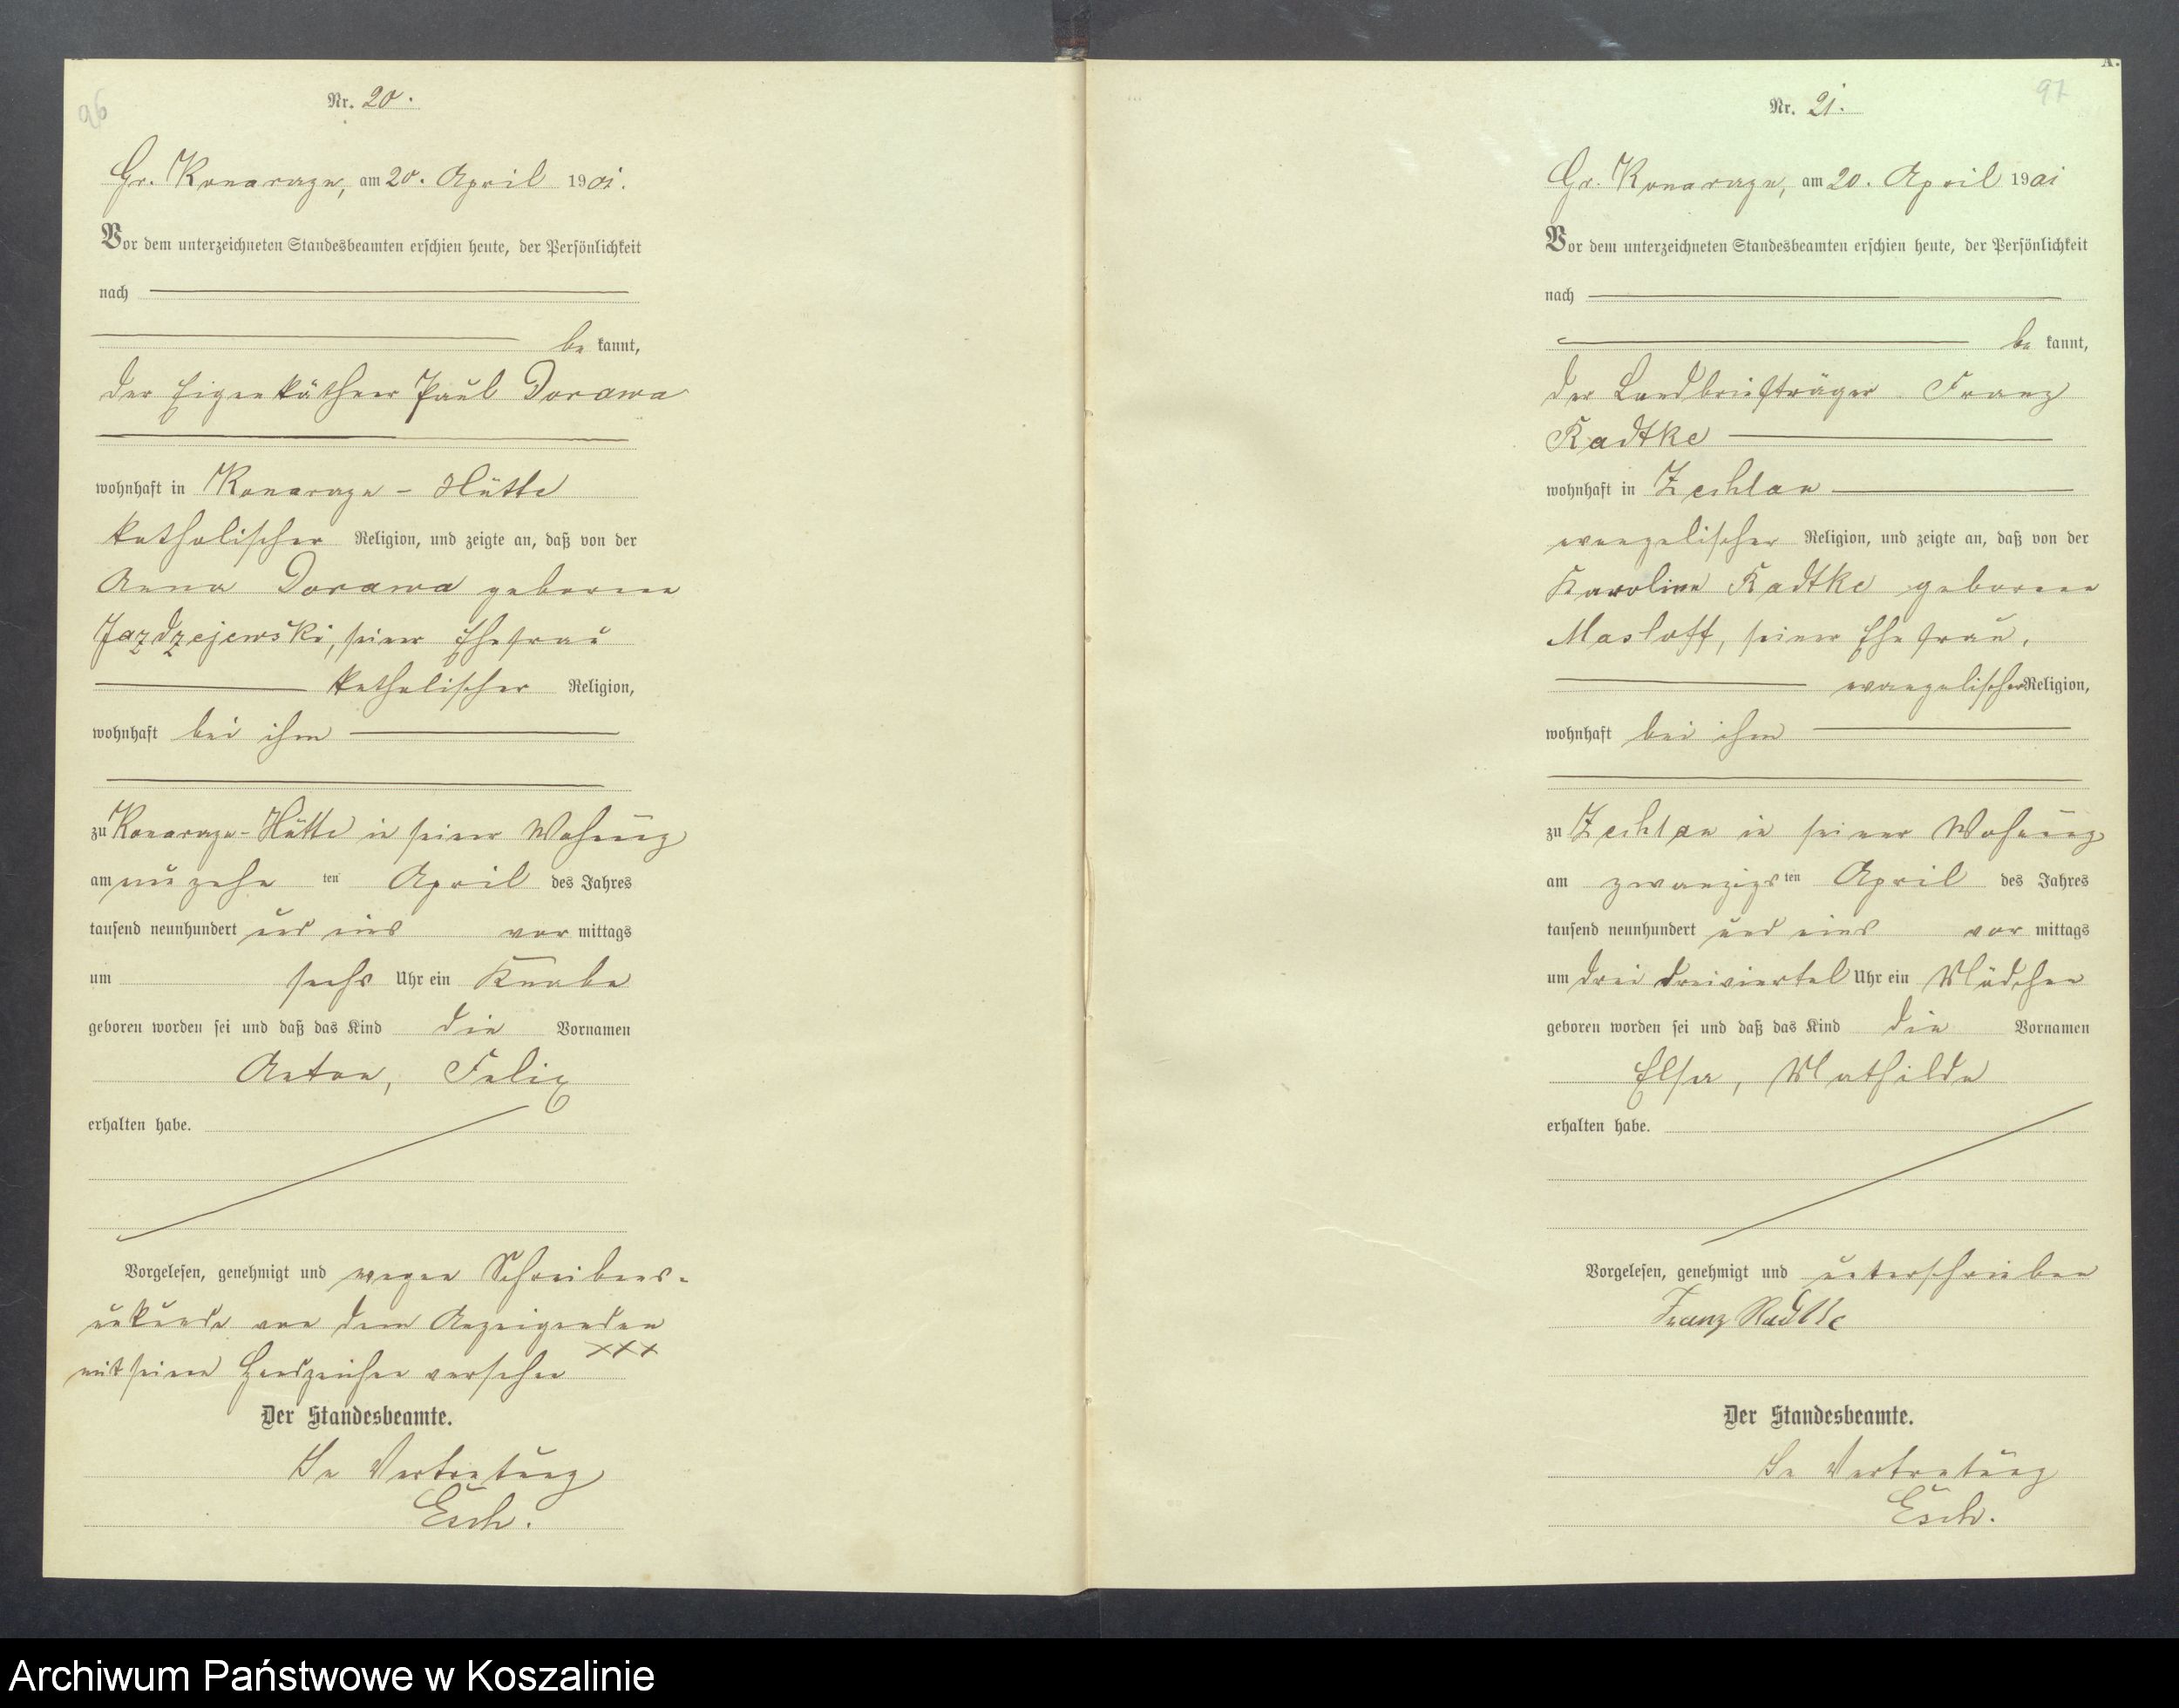 96
Nr. 20.
Gr. Konarazyn, am 20. April 1901.
Vor dem unterzeichneten Standesbeamten erschien heute, der Persönlichkeit
nach
be kannt,
der Eigenkäthner Paul Dorawa
wohnhaft in Konarzyn - Hütte
katholischer Religion, und zeigte an, daß von der
Anna Dorawa geborene
Jazdzejewski, seiner Ehefrau
katholischer Religion,
wohnhaft bei ihm
zu Konarzyn - Hütte in seiner Wohnung
am neunzehn ten April des Jahres
tausend neunhundert und eins vor mittags
um sechs Uhr ein Knabe
geboren worden sei und daß das Kind die Vornamen
Anton, Felix
erhalten habe.
Vorgelesen, genehmigt und wegen Schreibens-
unkunde von dem Anzeigenden
mit seinen Handzeichen versehen XXX
Der Standesbeamte.
In Vertretung
Esch.
97
A.
Nr. 21.
Gr. Konarzyn, am 20. April 1901
Vor dem unterzeichneten Standesbeamten erschien heute, der Persönlichkeit
nach
be kannt,
der Landbriefträger Franz
Radtke
wohnhaft in Zechlau
evangelischer Religion, und zeigte an, daß von der
Karoline Radtke geborene
Masloff, seiner Ehefrau,
evangelischer Religion,
wohnhaft bei ihm
zu Zechlau in seiner Wohnung
am zwanzigsten April des Jahres
tausend neunhundert und eins vor mittags
um drei dreiviertel Uhr ein Mädchen
geboren worden sei und daß das Kind die Vornamen
Elsa, Mathilde
erhalten habe.
Vorgelesen, genehmigt und unterschrieben
Franz Radtke
Der Standesbeamte.
In Vertretung
Esch.
Archiwum Państwowe w Koszalinie